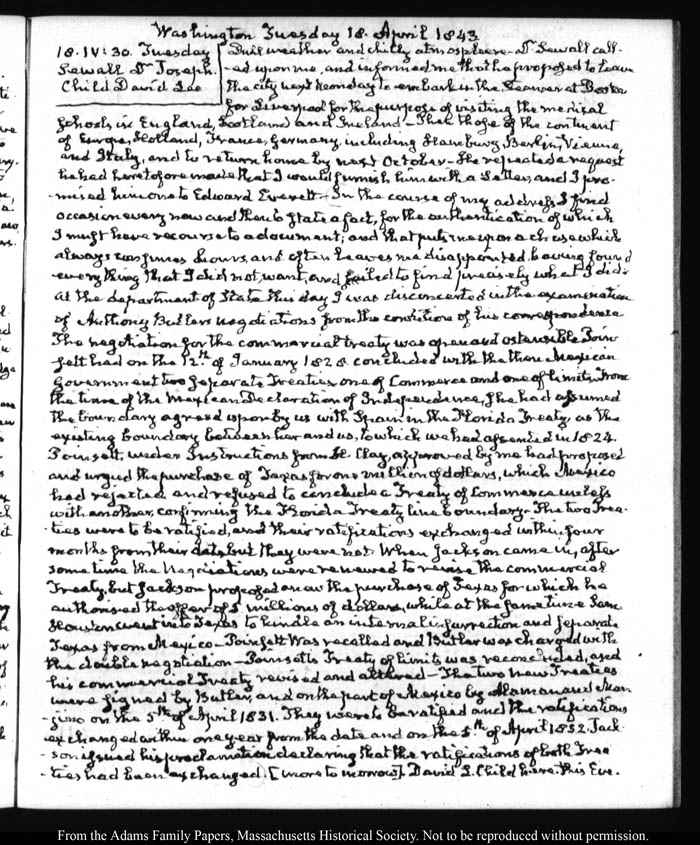 Washington Tuesday 18. April 1843
18. IV: 30. Tuesday
Sewall Dr Joseph.
Child David Lee
Dull weather and chilly atmosphere - Dr Sewall call-
-ed upon me, and informed me that he proposed to leave
the city next Monday to embark in the Steamer at Boston
for Liverpool for the purpose of visiting the medical
schools in England, Scotland and Ireland - Then those of the continent
of Europe, Holland, France, Germany, including Hamburg, Berlin, Vienna,
and Italy, and to return home by next October - He repeated a request
he had heretofore made that I would furnish him with a Letter, and I pro-
-mised him one to Edward Everett - In the course of my address I find
occasion every now and then to state a fact, for the authentication of which
I must have recourse to a document; and that puts me upon a chase which
always consumes hours, and often leaves me disappointed, having found
every thing that I did not want, and failed to find precisely what I did.
At the department of State this day I was disconcerted in the examination
of Anthony Butler's negotiations from the condition of his correspondence
The negotiation for the commercial treaty was open and ostensible Poin-
sett had on the 12th of January 1828 concluded with the then Mexican
Government two separate Treaties one of Commerce and one of limits. From
the time of the Mexican Declaration of Independence, she had assumed
the boundary agreed upon by us with Spain in the Florida Treaty, as the
existing boundary between her and us, to which we had assented in 1824.
Poinsett, under Instructions from H. Clay, approved by me had proposed
and urged the purchase of Texas for one million of dollars, which Mexico
had rejected and refused to conclude a Treaty of Commerce unless
with another, confirming the Florida Treaty line boundary - The two Trea-
-ties were to be ratified, and their ratifications exchanged within four
months from their date, but they were not. When Jackson came in, after
some time the Negotiations were renewed to revise the commercial
Treaty, but Jackson proposed anew the purchase of Texas for which he
authorised the offer of 5 millions of dollars, while at the same time Sam.
Houston went into Texas to kindle an internal insurrection and separate
Texas from Mexico - Poinsett was recalled and Butler was charged with
the double negotiation - Poinsett's Treaty of limits was reconcluded, and
his commercial Treaty revised and altered - The two new Treaties
were signed by Butler, and on the part of Mexico by Alaman and Man-
-gino on the 5th of April 1831. They were to be ratified and the ratifications
exchanged within one year from the date and on the 5th of April 1832. Jack-
-son issued his proclamation declaring that the ratifications of both Trea-
-ties had been exchanged. [more to morrow]. David L. Child here this Eve.
From the Adams Family Papers, Massachusetts Historical Society. Not to be reproduced without permission.